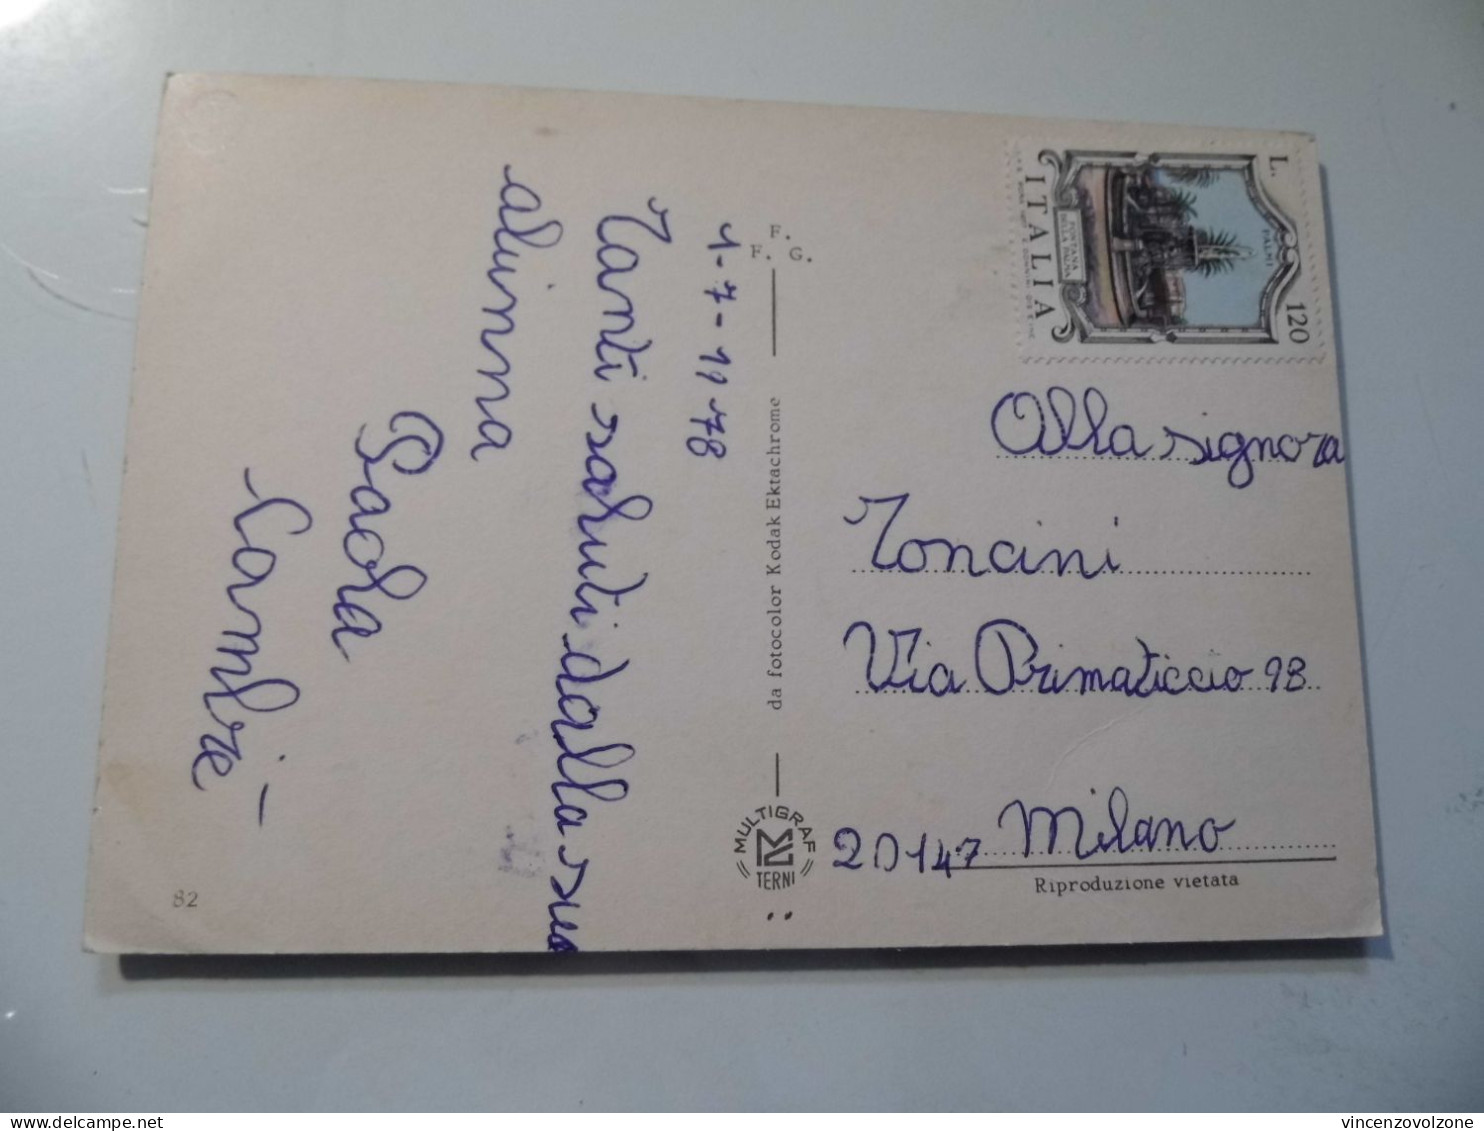 1-7-1978
Tanti saluti dalla sua
alunna
Paola
F.
F. G.
da fotocolor Kodak Ektachrome
MULTIGRAF
TERNI
82
L. 120
ITALIA
PALMI
FONTANA
DELLA PALMA
Alla signora
Toncini
Via Primaticcio 98
20147 Milano
Riproduzione vietata
vincenzovolzone